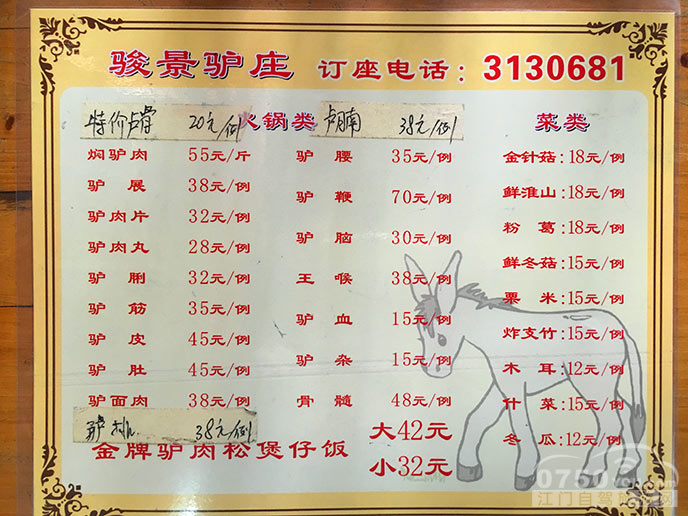 骏景驴庄 订座电话：3130681
特价卢骨 20元/例 火锅类 卢腩 38元/例 菜类
焖驴肉 55元/斤
驴展 38元/例
驴肉片 32元/例
驴肉丸 28元/例
驴脷 32元/例
驴筋 35元/例
驴皮 45元/例
驴肚 45元/例
驴面肉 38元/例
驴 38元/例
驴腰 35元/例
驴鞭 70元/例
驴脑 30元/例
王喉 38元/例
驴血 15元/例
驴杂 15元/例
骨髓 48元/例
金针菇:18元/例
鲜淮山:18元/例
粉葛:18元/例
鲜冬菇:15元/例
粟米:15元/例
炸支竹:15元/例
木耳:12元/例
什菜:15元/例
冬瓜:12元/例
金牌驴肉松煲仔饭 大42元
小32元
0750
江门自驾网